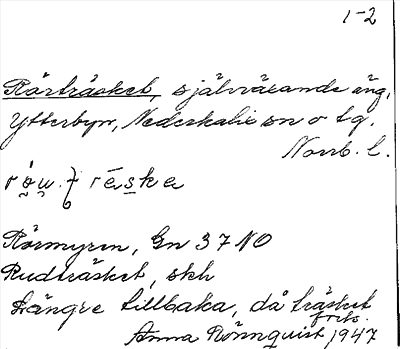 1-2
Rörträsket, självväxande äng,
Ytterbyn, Nederkalix sn o tg.
Norrb. l.
träska
Rörmyren, Gn 37 NO
Rudträsket, skh
längre tillbaka, då träsket
fanns.
Anna Rönnquist 1947